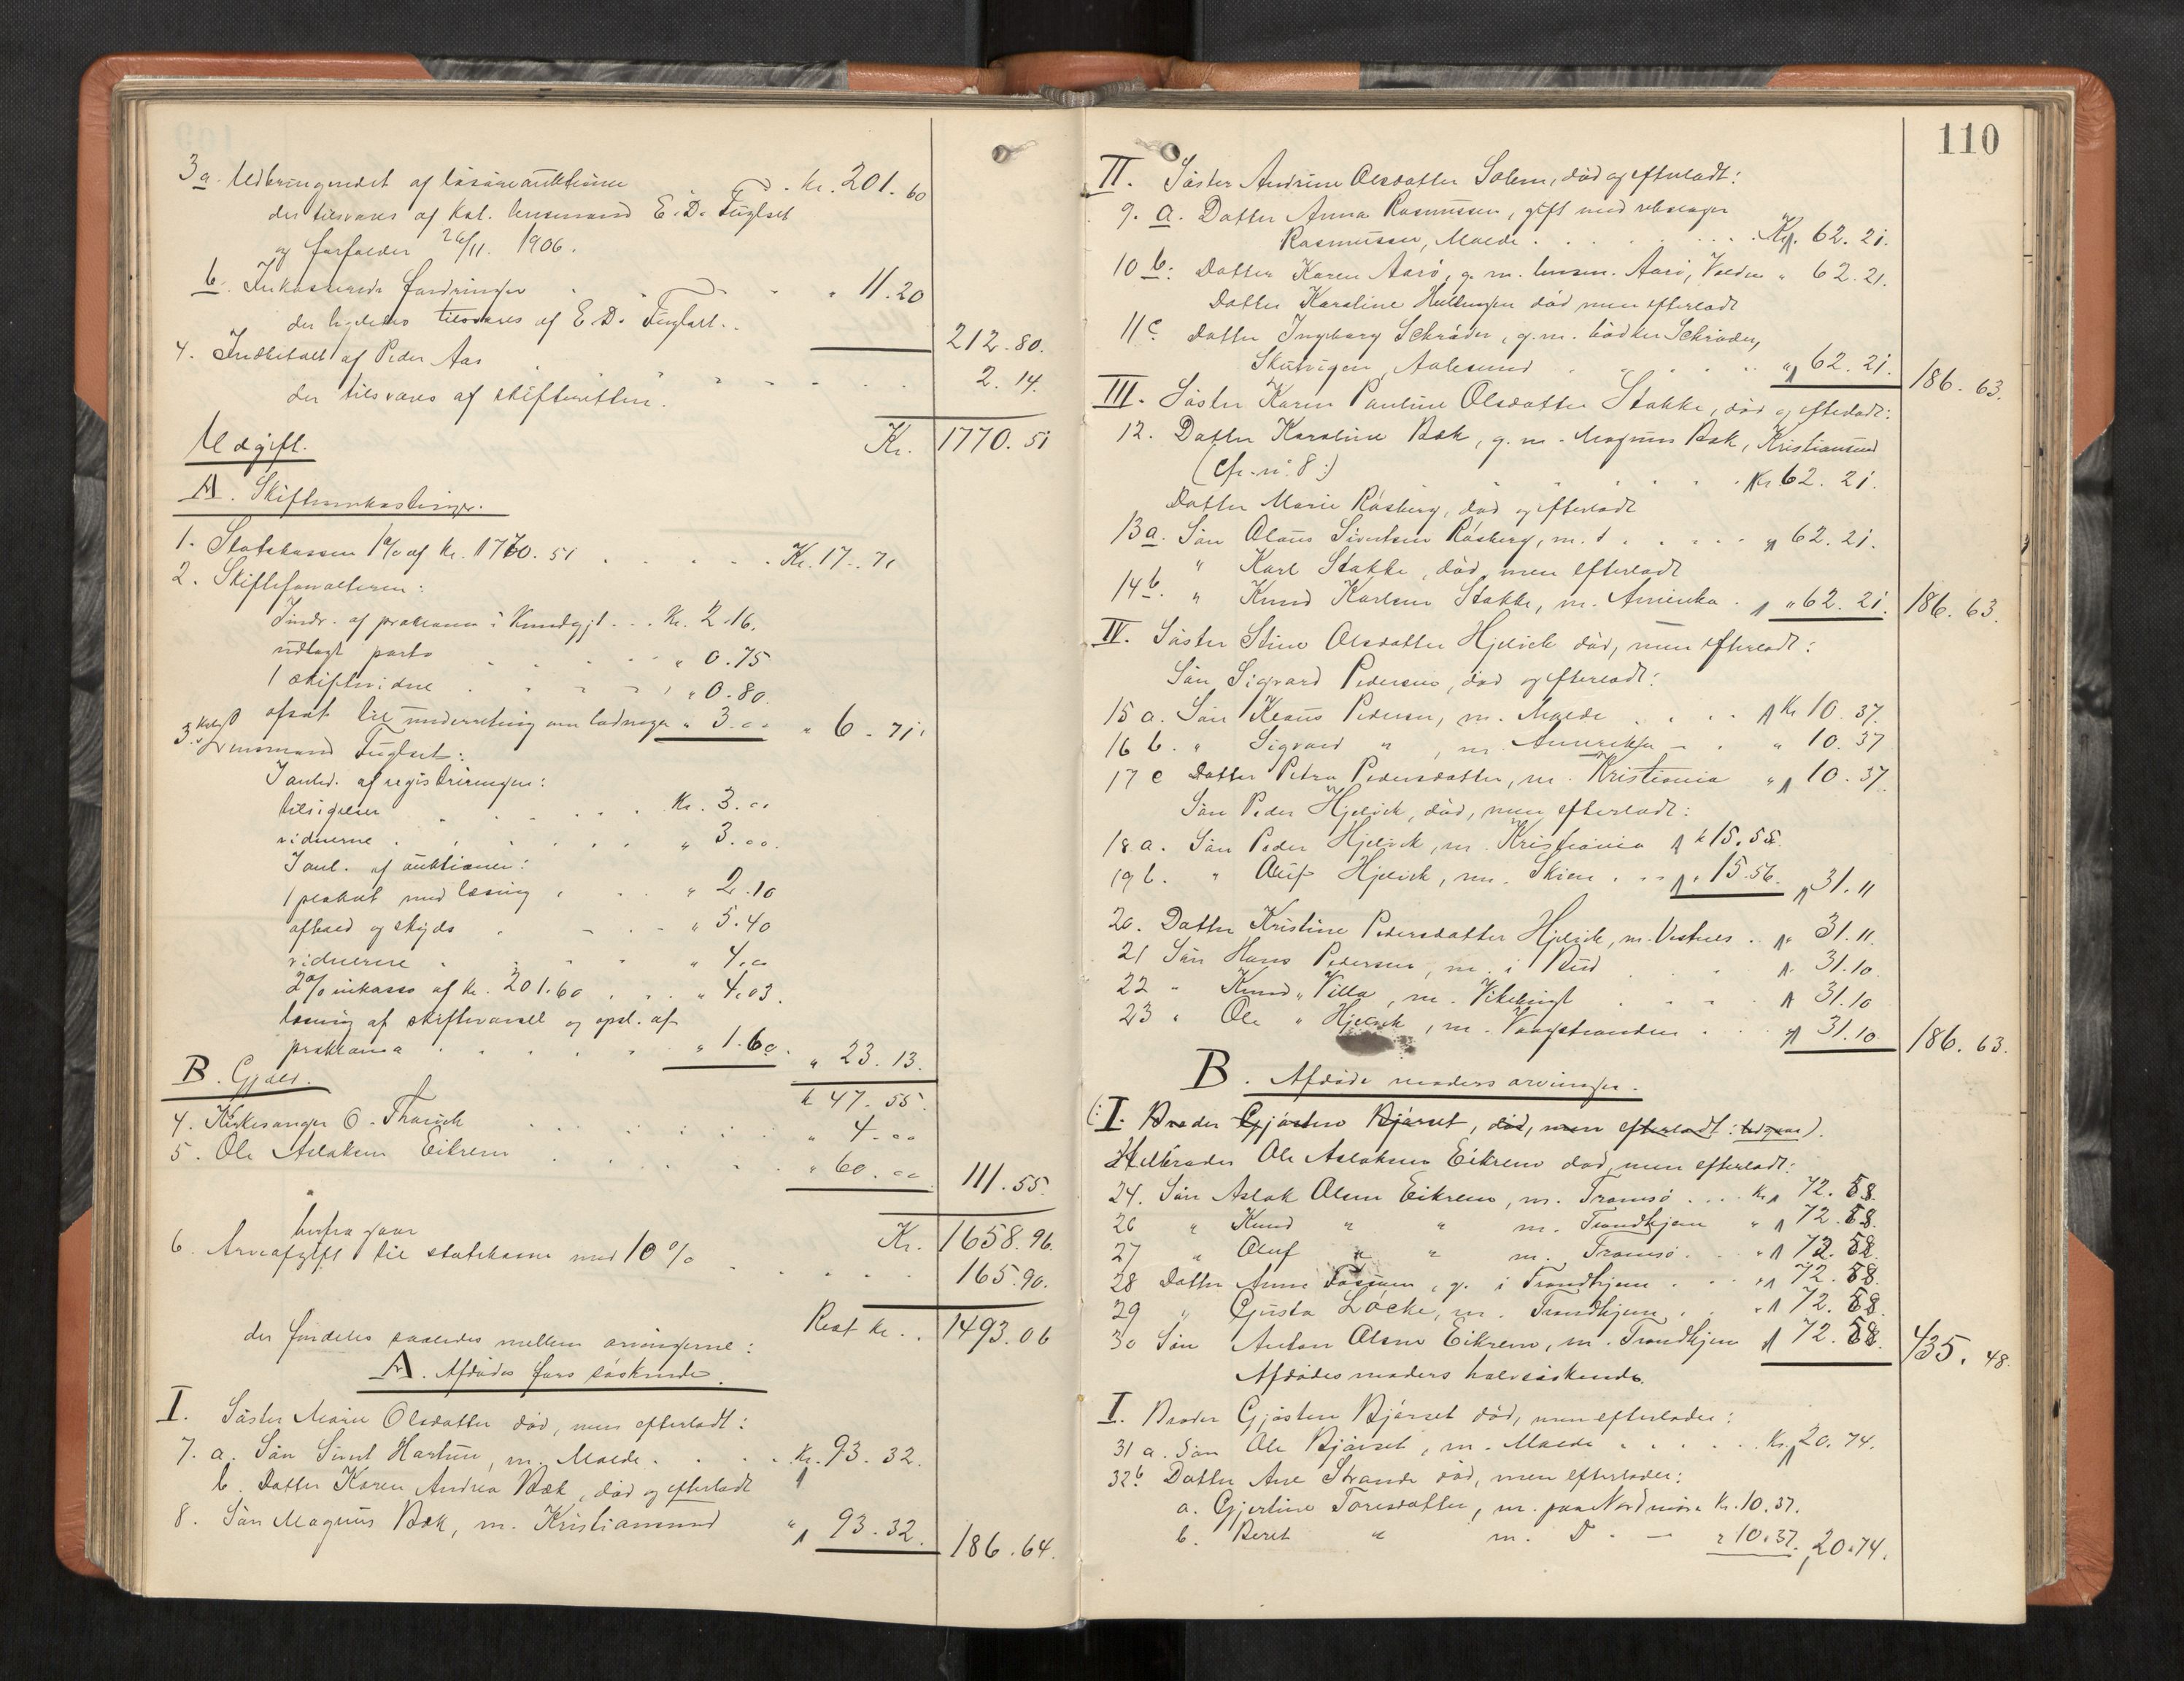 3a. Udbringendet af løsøreauktionen . kr. 201.60
der tilsvares af Kst. lensmand E. D. Fuglset
og forfalder 26/11. 1906.
b. Inkasserede fordringer . . . " 11.20
der ligeledes tilsvares af E. D. Fuglset.. 212.80.
4. Indbetalt af Peder Aas . . . . . 2.14.
der tilsvares af skifteretten.
Kr. 1770.51
Udgift.
A. Skifteomkostninger.
1. Statskassen 1% af kr. 1770.51 . . . . . Kr. 17.71
2. Skifteforvalteren:
Indr. af proklama i Kundgjt. . . Kr. 2.16.
udlagt porto . . . . " 0.75
1 skiftevidne . . . . " 0.80.
afsat til underretning om lodninger " 3.00 " 6.71.
3. Kst. Lensmand Fuglset:
I anled. af registreringen:
tilsigelser . . . . . Kr. 3.00
vidnerne . . . . . " 3.00.
I anl. af auktionen:
1 plakat med læsning . . . " 2.10
afhold og skyds . . . " 5.40
vidnerne . . . . " 4.00
2% inkasso af kr. 201.60 . . . " 4.03.
læsning af skiftevarsel og opsl. af
proklama . . . . . " 1.60. " 23.13.
B. Gjæld. k 47.55.
4. Kirkesanger O. Tharvik . . . . . . " 4.00
5. Ole Aslaksen Eikrem . . . . . " 60.00. 111.55.
Kr. 1658.96.
herfra gaar
6. Arveafgift til statskassen med 10% . . . . . 165.90.
Rest kr. . 1493.06
der fordeles saaledes mellem arvingerne:
A. Afdødes fars søskende.
I. Søster Marie Olsdatter død, men efterladt:
7. a. Søn Sivert Hartun, m. Molde . . . . Kr. 93.32.
b. Datter Karen Andrea Bæk, død og efterladt
8. Søn Magnus Bæk, m. Kristiansund " 93.32. 186.64.
110
II. Søster Andrine Olsdatter Solem, død og efterladt:
9. a. Datter Anna Rasmussen, gift med rebslager
Rasmussen, Molde . . . . . . . Kr. 62.21.
10 b. Datter Karen Aarø, g. m. lensm. Aarø, Volden " 62.21.
Datter Karoline Hullingen død men efterladt
11c datter Ingeborg Schrøder, g. m. bødker Schrøder,
Skutvigen, Aalesund . . . . . " 62.21. 186.63.
III. Søster Karen Pauline Olsdatter Stokke, død og efterladt:
12. Datter Karoline Bæk, g. m. Magnus Bæk, Kristiansund
(cfr. n. 8:) . . . . . . Kr. 62.21.
Datter Marie Røsberg, død og efterladt
13 a. Søn Olaus Sivertsen Røsberg, m. d . . . . . " 62.21.
" Karl Stokke, død men efterladt
14 b. " Knud Karlsen Stokke, m. Amerika . " 62.21. 186.63.
IV. Søster Stine Olsdatter Hjelvik død, men efterladt:
Søn Sigvard Pedersen, død og efterladt:
15 a. Søn Klaus Pedersen, m. Molde . . . . Kr 10.37.
16 b. " Sigvard " , m. Amerika . . " 10.37
17 c Datter Petra Pedersdatter, m. Kristiania " 10.37.
Søn Peder Hjelvik, død, men efterladt:
18 a. Søn Peder Hjelvik, m. Kristiania k 15.55.
19 b. " Oluf Hjelvik, m. Skien . . . " 15.56. 31.11
20. Datter Kristine Pedersdatter Hjelvik, m. Vestnes . " 31.11.
21 Søn Hans Pedersen, m. i Bud . . . 31.10.
22 " Knud " Villa, m. Vikebugt . . . 31.10
23 " Ole " Hjelvik, m. Vaagstranden . . . " 31.10. 186.63.
B. Afdøde moders arvinger.
(:I. Broder Gjøsten Bjørset, død, men efterladt: udgaar).
Helbroder Ole Aslaksen Eikrem død, men efterladt:
24. Søn Aslak Olsen Eikrem, m. Tromsø . . . Kr. 72.58.
26 " Knud " " m. Trondhjem " 72.58.
27 " Oluf " " m. Tromsø . . " 72.58.
28 Datter Anne Fossum, g. i Trondhjem . . " 72.58.
29 " Gjusta Løcke, m. Trondhjem . . " 72.58.
30 Søn Anton Olsen Eikrem, m. Trondhjem 72.58. 435.48.
Afdødes moders halvsøskende.
I. Broder Gjøsten Bjørset død, men efterlader:
31 a. Søn Ole Bjørset, m. Molde . . . . . Kr. 20.74.
32 b Datter Ane Strande død, men efterlader:
a. Gjertine Toresdatter, m. paa Nordmøre Kr. 10.37.
b. Beret " m. D. — " 10.37. 20.74.